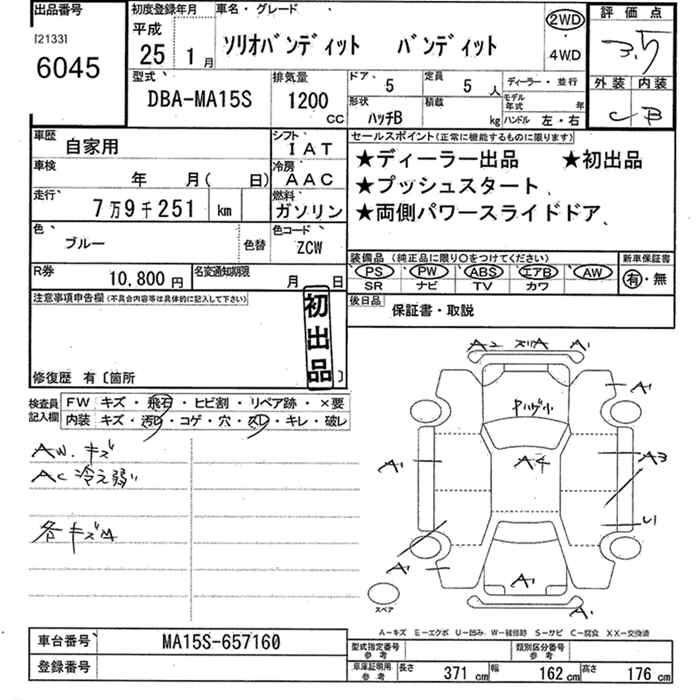 出品番号
[2133]
6045
初度登録年月
平成
25 1月
車名・グレード
ソリオバンディット バンディット
2WD
4WD
評価点
3.5
外装 内装
C B
型式
DBA-MA15S
排気量
1200 cc
ドア 5
定員 5人
形状 ハッチB
積載 kg
ディーラー・並行
モデル年式 年
ハンドル 左・右
車歴
自家用
シフト
IAT
車検
年 月( 日)
冷房
AAC
走行
7万9千251 km
燃料
ガソリン
色
ブルー
色替
色コード
ZCW
R券
10,800円
名変通知期限
月 日
セールスポイント(正常に機能するものに限ります)
★ディーラー出品 ★初出品
★プッシュスタート
★両側パワースライドドア
装備品 (純正品に限り○をつけてください)
PS PW ABS エアB AW
SR ナビ TV カワ
新車保証書
有・無
後日品
保証書・取説
注意事項申告欄(不具合内容等は具体的に記入して下さい)
初出品
修復歴 有〔箇所 〕
検査員記入欄
FW キズ・飛石・ヒビ割・リペア跡・×要
内装 キズ・汚レ・コゲ・穴・スレ・キレ・破レ
AW.キズ
AC 冷え弱い
各キズ凹
A2 スリA A1
A1
Pハゲ小
A1
A4
A3
U1
A1
A1
A1
スペア
A-キズ E-エクボ U-凹み W-補修跡 S-サビ C-腐食 XX-交換済
車台番号
MA15S-657160
登録番号
型式指定番号
参考
類別区分番号
参考
車庫証明用
参考
長さ 371cm
幅 162cm
高さ 176cm